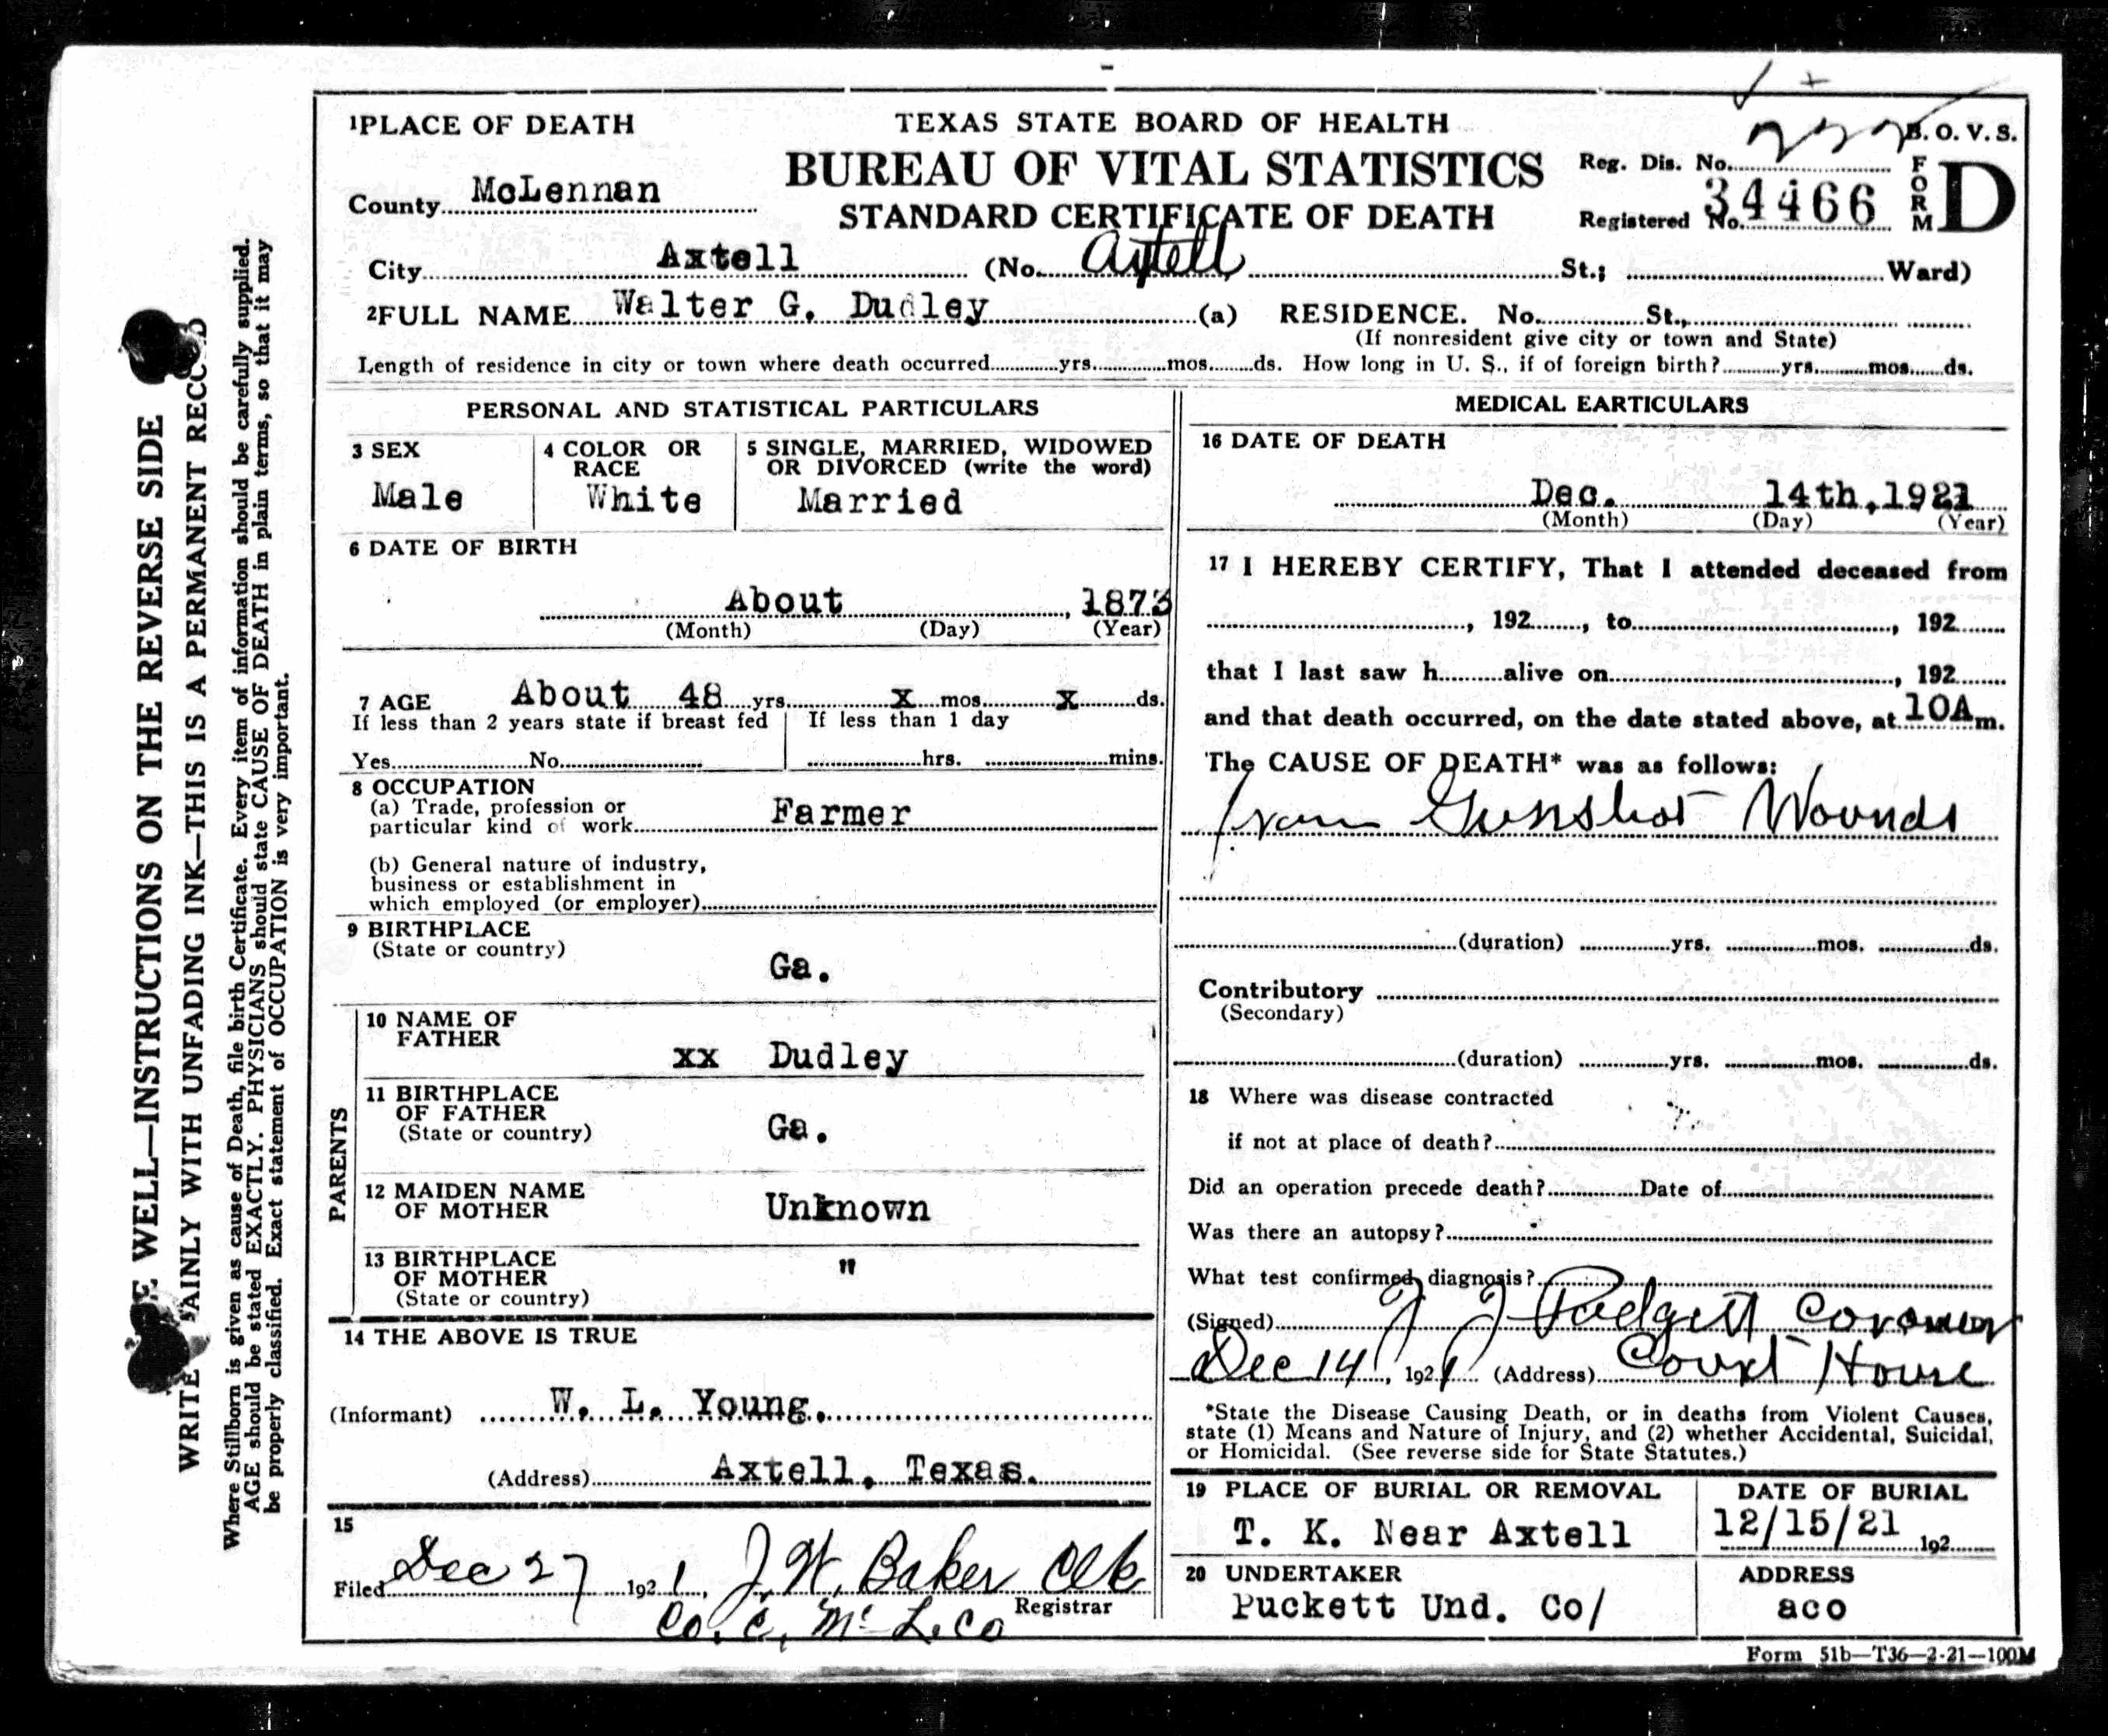 1PLACE OF DEATH
TEXAS STATE BOARD OF HEALTH
B. O. V. S.
County McLennan
BUREAU OF VITAL STATISTICS
Reg. Dis. No.
STANDARD CERTIFICATE OF DEATH
Registered No. 34466
FORM D
City Axtell (No. Axtell St.; Ward)
2FULL NAME Walter G. Dudley (a) RESIDENCE. No. St.,
(If nonresident give city or town and State)
Length of residence in city or town where death occurred yrs. mos. ds. How long in U. S., if of foreign birth? yrs. mos. ds.
PERSONAL AND STATISTICAL PARTICULARS
3 SEX
Male
4 COLOR OR
RACE
White
5 SINGLE, MARRIED, WIDOWED
OR DIVORCED (write the word)
Married
6 DATE OF BIRTH
About , 1873
(Month) (Day) (Year)
7 AGE About 48 yrs. X mos. X ds.
If less than 2 years state if breast fed
Yes No
If less than 1 day
hrs. mins.
8 OCCUPATION
(a) Trade, profession or
particular kind of work Farmer
(b) General nature of industry,
business or establishment in
which employed (or employer)
9 BIRTHPLACE
(State or country)
Ga.
PARENTS
10 NAME OF
FATHER
xx Dudley
11 BIRTHPLACE
OF FATHER
(State or country)
Ga.
12 MAIDEN NAME
OF MOTHER
Unknown
13 BIRTHPLACE
OF MOTHER
(State or country)
"
14 THE ABOVE IS TRUE
(Informant) W. L. Young.
(Address) Axtell, Texas.
15
Filed Dec 27 1921, J. W. Baker Clk
Registrar
Co. C, Mc L. Co
MEDICAL EARTICULARS
16 DATE OF DEATH
Dec. 14th, 1921
(Month) (Day) (Year)
17 I HEREBY CERTIFY, That I attended deceased from
, 192 , to , 192
that I last saw h alive on , 192
and that death occurred, on the date stated above, at 10A m.
The CAUSE OF DEATH* was as follows:
from Gunshot Wounds
(duration) yrs. mos. ds.
Contributory
(Secondary)
(duration) yrs. mos. ds.
18 Where was disease contracted
if not at place of death?
Did an operation precede death? Date of
Was there an autopsy?
What test confirmed diagnosis?
(Signed) J J Padgett Coroner
Dec 14, 1921 (Address) Court House
*State the Disease Causing Death, or in deaths from Violent Causes,
state (1) Means and Nature of Injury, and (2) whether Accidental, Suicidal,
or Homicidal. (See reverse side for State Statutes.)
19 PLACE OF BURIAL OR REMOVAL
T. K. Near Axtell
DATE OF BURIAL
12/15/21 192
20 UNDERTAKER
Puckett Und. Co/
ADDRESS
aco
Form 51b—T36—2-21—100M
WELL—INSTRUCTIONS ON THE REVERSE SIDE
WRITE AINLY WITH UNFADING INK—THIS IS A PERMANENT RECO D
Where Stillborn is given as cause of Death, file birth Certificate. Every item of information should be carefully supplied.
AGE should be stated EXACTLY. PHYSICIANS should state CAUSE OF DEATH in plain terms, so that it may
be properly classified. Exact statement of OCCUPATION is very important.